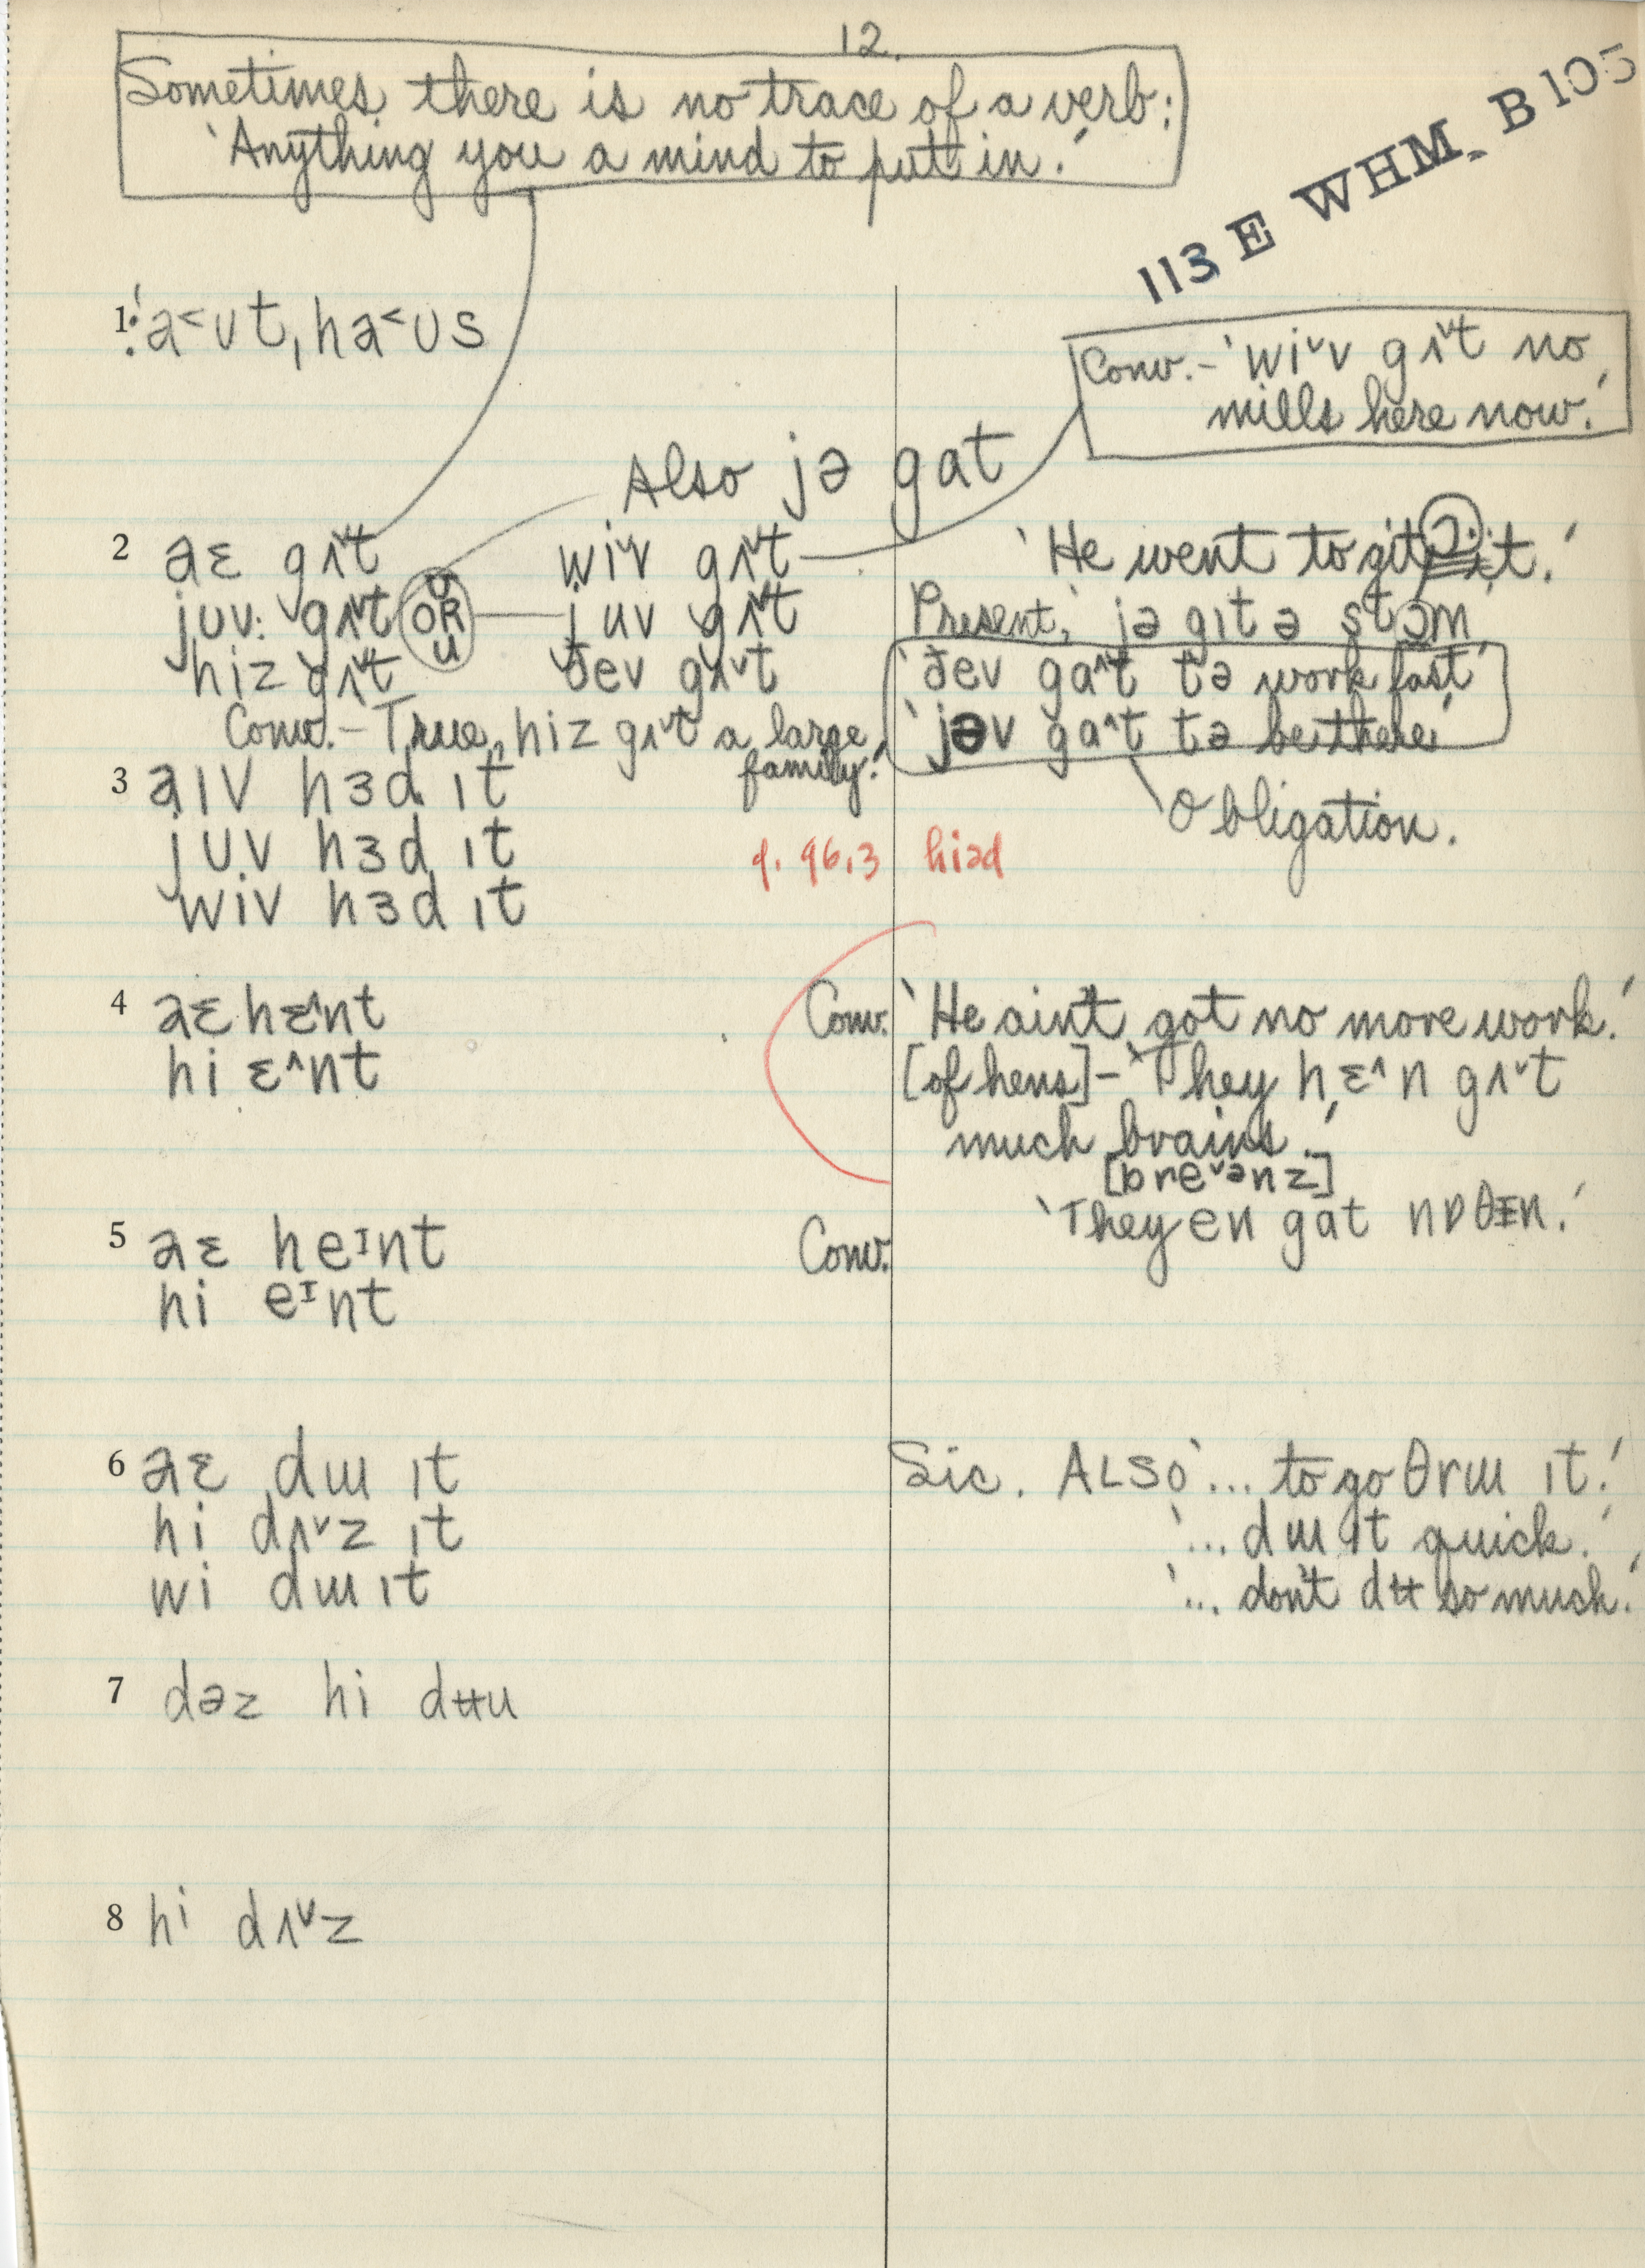 12.
Sometimes there is no trace of a verb:
'Anything you a mind to put in.'
113 E WHM B105
1. a˂ʊt, ha˂ʊs
Conv.– 'wiᵛv gʌᵛt no
mills here now.'
Also jə gat
2 aɛ gʌᵛt
juv: gʌᵛt
hiz gʌᵛt
ʊ
OR
u
wiᵛv gʌᵛt
juv gʌᵛt
ðev gʌᵛt
Conv.– 'True, hiz gʌᵛt a large
family.'
'He went to git it.'
Present, 'jə gɪt ə stɔm'
'ðev ga^t tə work fast'
'jəv ga^t tə be there'
Obligation.
3 aɪv hɜd ɪt
juv hɜd ɪt
wiv hɜd ɪt
q. 96.3 hiəd
4 aɛ hɛ^nt
hi ɛ^nt
Conv. 'He ain't got no more work.'
[of hens]– 'They hɛ^n gʌᵛt
much brains.'
[breᵛənz]
5 aɛ heᶦnt
hi eᶦnt
Conv. 'They en gat nɒθɪn.'
6 aɛ dɯ ɪt
hi dʌᵛz ɪt
wi dɯ ɪt
Sic. ALSO '... to go θrɯ ɪt.'
'... dɯ ɪt quick.'
'... don't dʉ so much.'
7 dəz hi dʉu
8 hi dʌᵛz